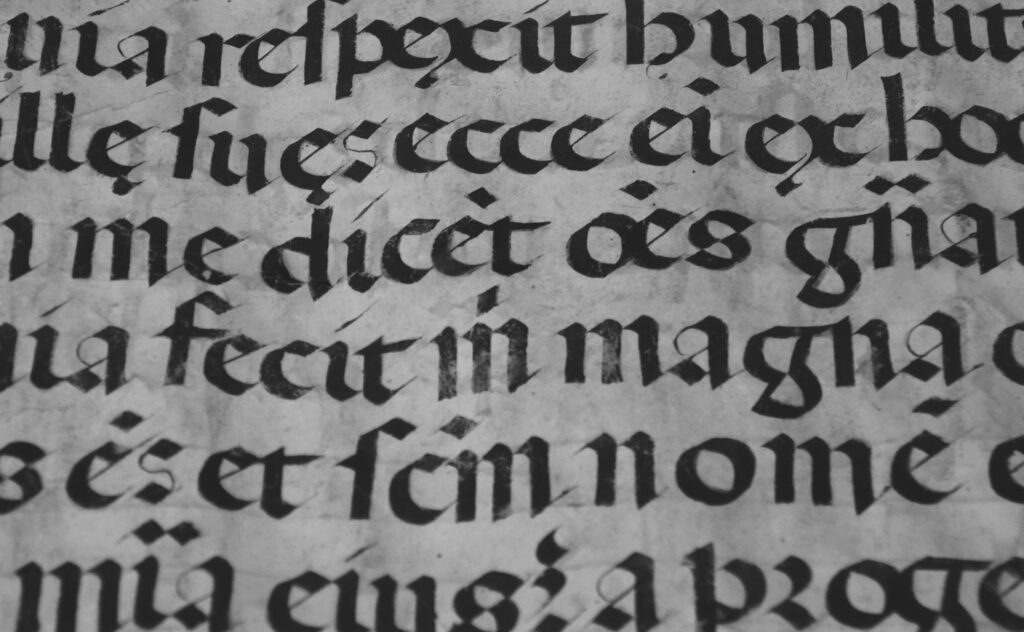 uia reſpexit humilit
illę ſuęs ecce ei ex hoc
n me dicẽt oẽs gñar
uia fecit mi magna q
s ẽs et ſcm̃ nomẽ e
mĩa eius: a proge